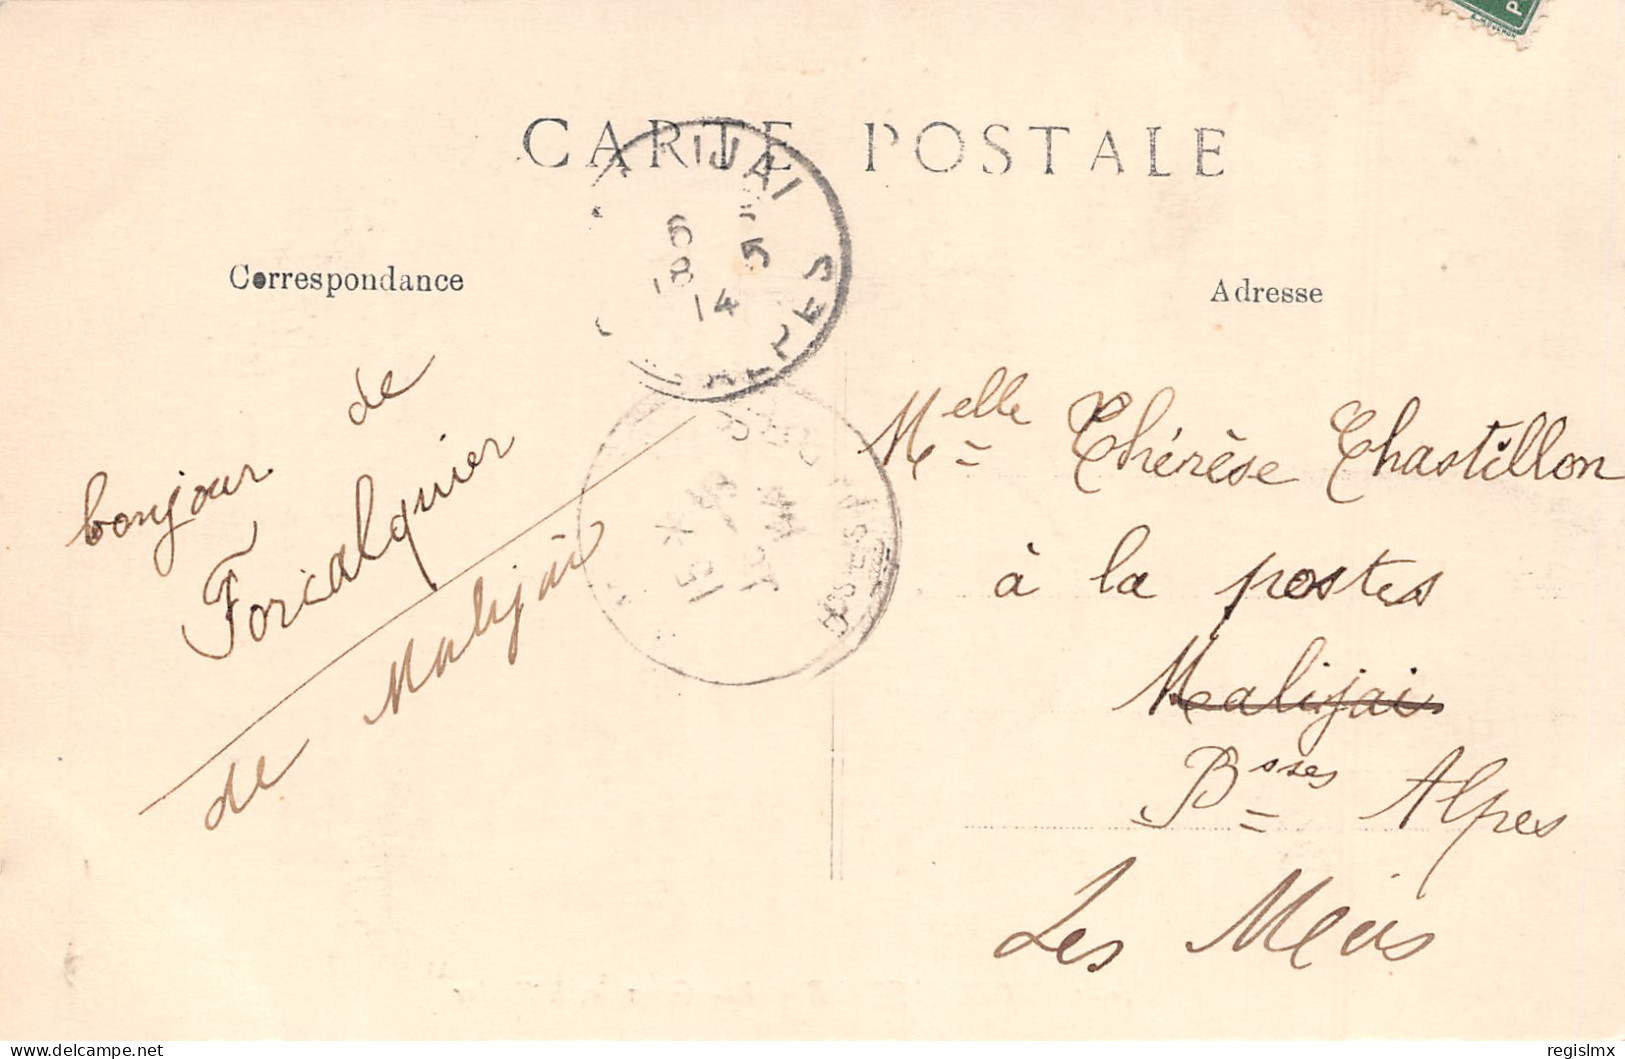 CARTE POSTALE
Correspondance
Adresse
IJAI
6
5
18
14
ALPES
bonjour de
Forcalquier
de Malijai
Melle Thérèse Chastillon
à la postes
Malijai
Bsses Alpes
Les Mées
15
regislmx
delcampe.net